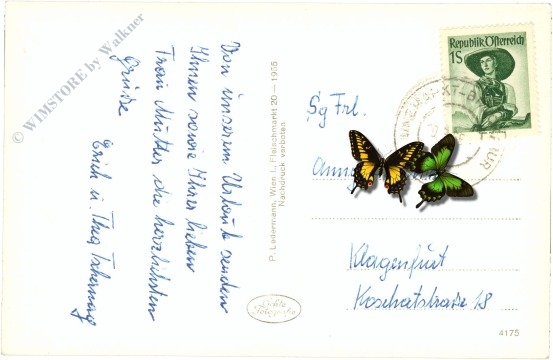 © WIMSTORE by Walkner
Von unserem Urlaub senden
Ihnen sowie Ihrer lieben
Frau Mutter die herzlichsten
Grüsse
Erich u. Thea
P. Ledermann, Wien I., Fleischmarkt 20 — 1955
Nachdruck verboten
Echte
Fotografie
Republik Österreich
1S
Sg Frl.
Klagenfurt
Koschatstraße 18
4175